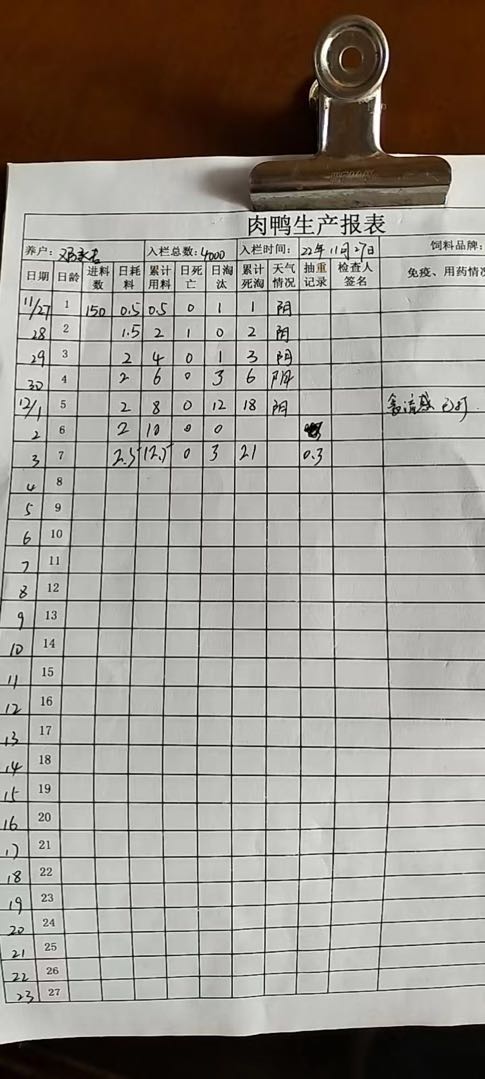 肉鸭生产报表
养户： 入栏总数：4000 入栏时间：22年11月27日 饲料品牌：
日期 日龄 进料数 日耗料 累计用料 日死亡 日淘汰 累计死淘 天气情况 抽重记录 检查人签名 免疫、用药情况
11/27 1 150 0.5 0.5 0 1 1 阴
28 2 1.5 2 1 0 2 阴
29 3 2 4 0 1 3 阴
30 4 2 6 0 3 6 阴
12/1 5 2 8 0 12 18 阴 禽流感已打
2 6 2 10 0 0
3 7 2.5 12.5 0 3 21 0.3
4 8
5 9
6 10
7 11
8 12
9 13
10 14
11 15
12 16
13 17
14 18
15 19
16 20
17 21
18 22
19 23
20 24
21 25
22 26
23 27